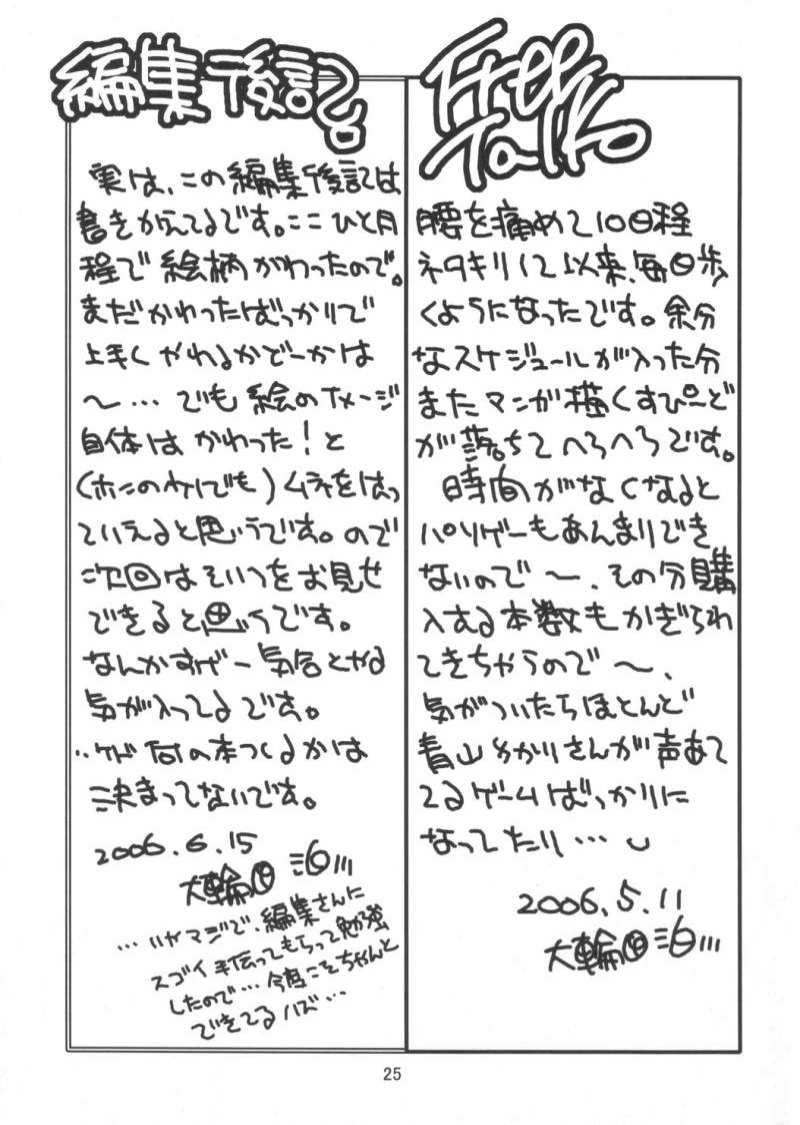 編集後記
実は、この編集後記は
書きかえてるです。ここひと月
程で絵柄がわったので。
まだかわったばっかりで
上手くやれるかどーかは
〜…でも絵のイメージ
自体はかわった!と
(ホこのウドでも)ムネをはっ
ていえると思うです。ので
次回はそいつをお見せ
できると思うです。
なんかすげー気合とやる
気が入ってるです。
‥ケド何の本つくるかは
決まってないです。
2006.6.15
大輪
…いやマジで、編集さんに
スゴイ手伝ってもらって勉強
したので…今度こそちゃんと
できてるハズ…
Free
Talk
腰を痛めて10日程
ネタキリして以来、毎日歩
くようになったです。余分
なスケジュールが入った分
またマンが描くすぴーど
が落ちてへろへろです。
時間がなくなると
パソゲーもあんまりでき
ないので〜、その分購
入する本数もかぎられ
てきちゃうので〜、
気がついたらほとんど
青山ゆかりさんが声あて
てるゲームばっかりに
なってたり…
2006.5.11
大輪
25